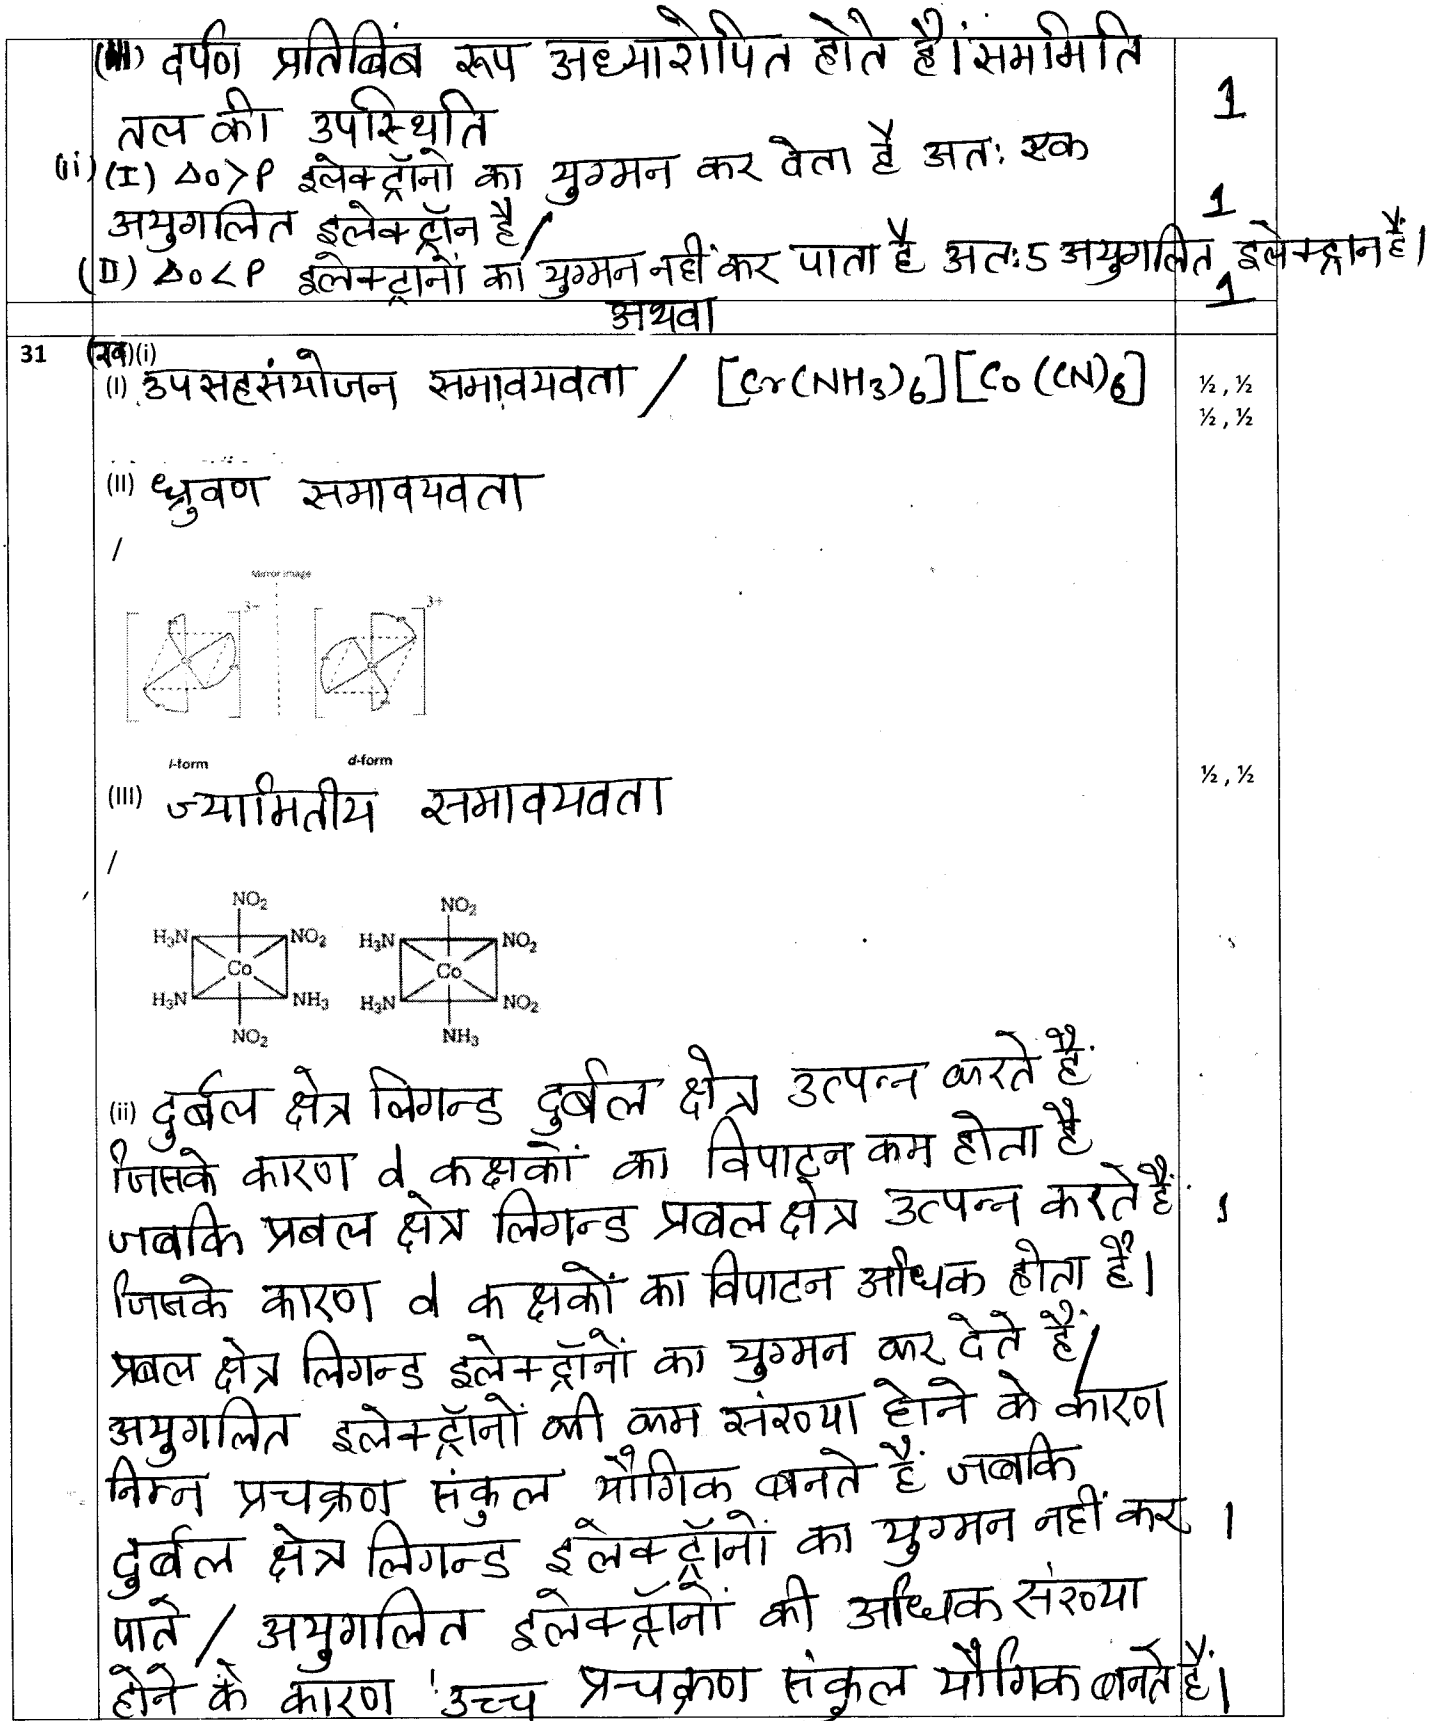 (III) दर्पण प्रतिबिंब रूप अध्यारोपित होते हैं। सममिति
तल की उपस्थिति
1
(ii) (I) Δo>P इलेक्ट्रॉनों का युग्मन कर देता है अतः एक
अयुगलित इलेक्ट्रॉन है/
1
(II) Δo<P इलेक्ट्रानों का युग्मन नहीं कर पाता है अतः 5 अयुगलित इलेक्ट्रान हैं।
1
अथवा
31 (ख)(i)
(I) उपसहसंयोजन समावयवता / [Cr(NH3)6][Co(CN)6] ½, ½
½, ½
(II) ध्रुवण समावयवता
/
Mirror image
3+ 3+
l-form d-form
(III) ज्यामितीय समावयवता ½, ½
/
NO2 NO2
H3N NO2 H3N NO2
Co Co
H3N NH3 H3N NO2
NO2 NH3
(ii) दुर्बल क्षेत्र लिगन्ड दुर्बल क्षेत्र उत्पन्न करते हैं
जिसके कारण d कक्षकों का विपाटन कम होता है
जबकि प्रबल क्षेत्र लिगन्ड प्रबल क्षेत्र उत्पन्न करते हैं 1
जिसके कारण d कक्षकों का विपाटन अधिक होता है।
प्रबल क्षेत्र लिगन्ड इलेक्ट्रॉनों का युग्मन कर देते हैं/
अयुगलित इलेक्ट्रॉनों की कम संख्या होने के कारण
निम्न प्रचक्रण संकुल यौगिक बनते हैं जबकि
दुर्बल क्षेत्र लिगन्ड इलेक्ट्रॉनों का युग्मन नहीं कर 1
पाते / अयुगलित इलेक्ट्रॉनों की अधिक संख्या
होने के कारण उच्च प्रचक्रण संकुल यौगिक बनते हैं।